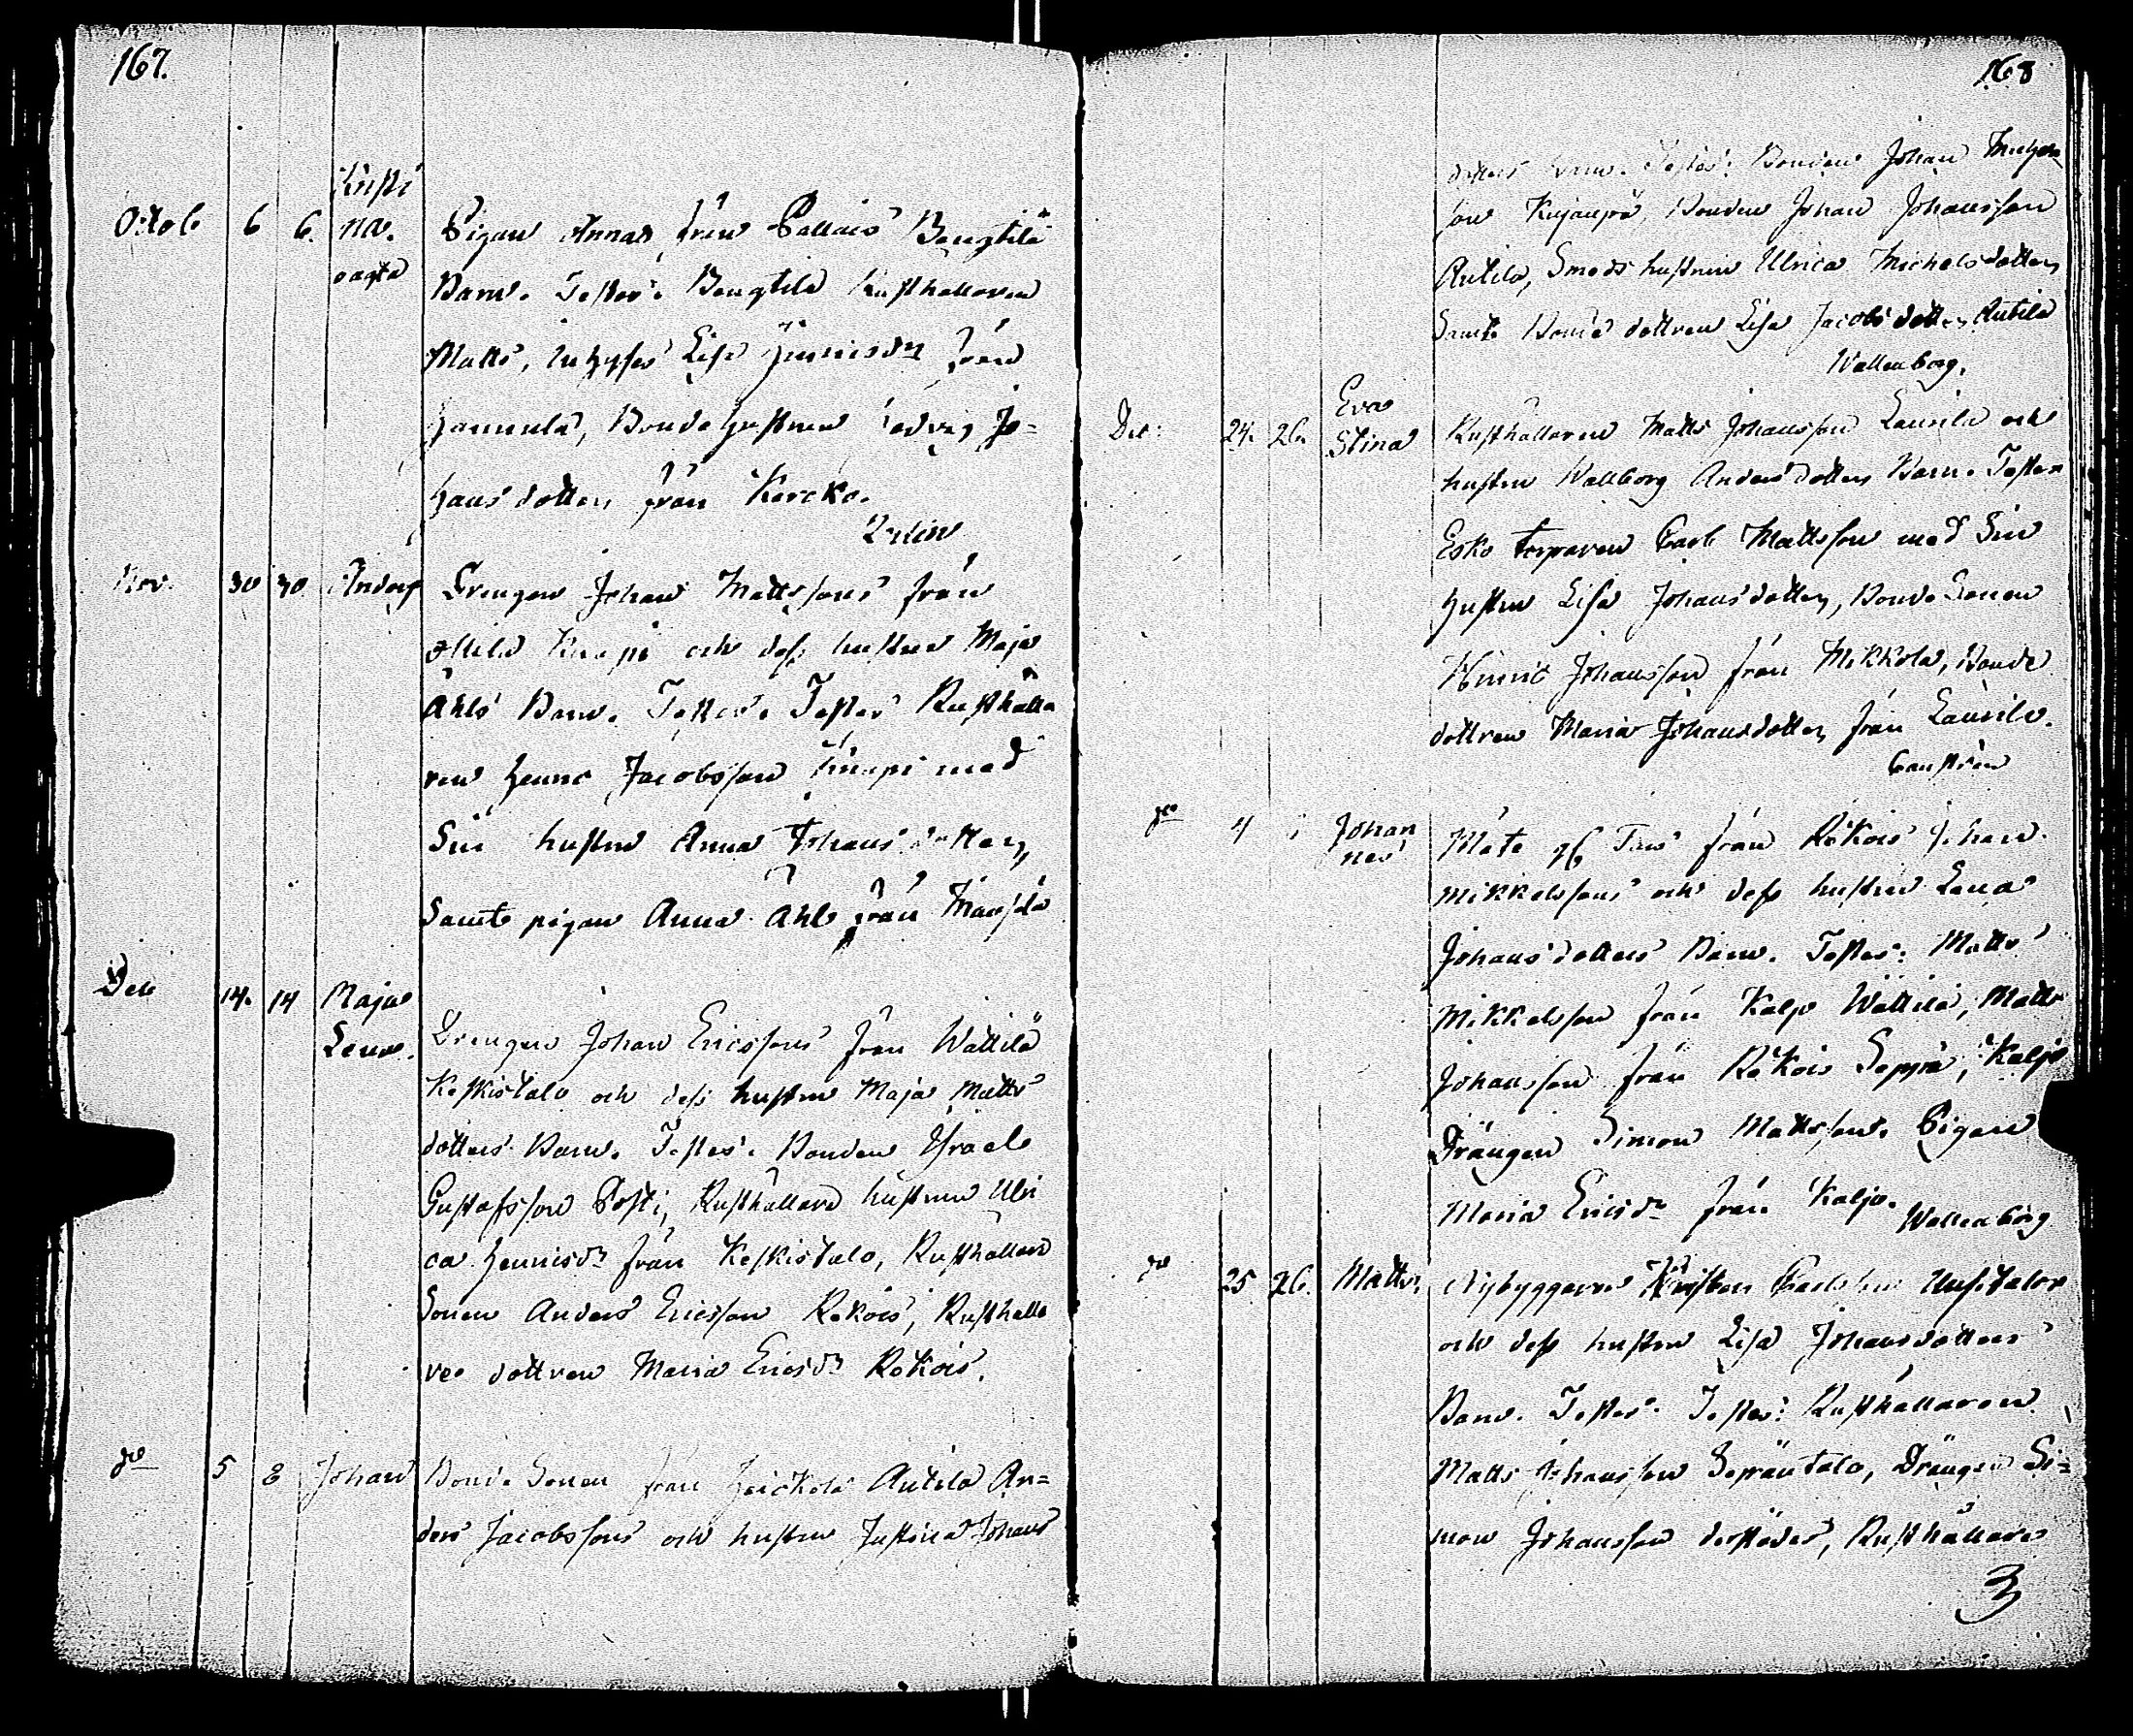 167.
Octob 6 6. Kristi
na.
oägta
Pigan Annas från Pallais Bengtilä
Barn. Testes: Bengtilä Rusthållaren
Matts, Inhyses Lisa Hinricsdr från
Hannula, Bonde hustrun Hedvig Jo=
hans dotter från Kercko.
Nov. 30 30 Anders
Drengen Johan Mattssons från
och dess hustru Maja
Ahls Barn. Testes. Testes Rusthålla
ren Henric Jacobsson Knapi med
Sin hustru Anna Johans dotter,
Samt pigan Anna Ahl från
Dec 14. 14 Maja
Lena.
Drengen Johan Ericssons från Wättilä
Keskistalo och dess hustru Maja Matts
dotters Barn. Testes. Bonden Israel
Gustafsson Posti, Rusthållare hustrun Ulri
ca Henricsdr från Keskistalo, Rusthållare
Sonen Anders Ericsson Rekois, Rusthålla
re dottren Maria Ericsdr Rekois.
do 5 8 Johan
Bonde Sonen från Heickola Antila An=
ders Jacobssons och hustru Justina Johans
168
dotters Barn. Testes: Bonden Johan Michels
son Kujanpä, Bonden Johan Johansson
Antila, Smeds hustrun Ulrica Michelsdotter,
Samt Bonde dottren Lisa Jacobsdotter, Antila
Wallenborg.
Dec: 24. 26. Eva
Stina
Rusthållaren Matts Johansson Laurila och
hustru Wallborg Andersdotters Barn. Testes
Esko torparen Carl Mattsson med Sin
hustru Lisa Johansdotter, Bonde Sonen
Hinric Johansson från Mikkola, Bonde
dottren Maria Johansdotter från Laurila.
Castrén
do 4 Johan
nes
från Rekois Johan
Mikkelssons och dess hustru Lena
Johansdotters Barn. Testes: Matts
Mikkelsson från Kaljo Wättilä, Matts
Johansson från Rekois Seppä, Kaljo
Drängen Simon Mattsson. Pigan
Maria Ericsdr från Kaljo.
Wallenborg
do 25 26. Matts.
Nybyggaren Carlsson Uusitalos
och dess hustru Lisa Johansdotters
Barn. Testes. Testes: Rusthållaren
Matts Johansson Seppäntalo, Drängen Si=
mon Johansson derstädes, Rusthållare
3